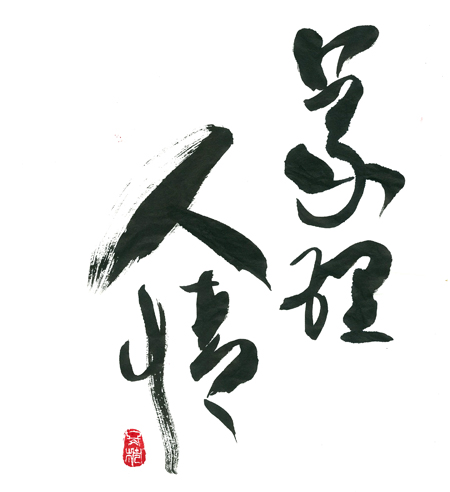 義理
人情